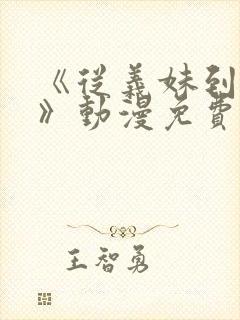 《從義妹到
》動漫免費
王智勇